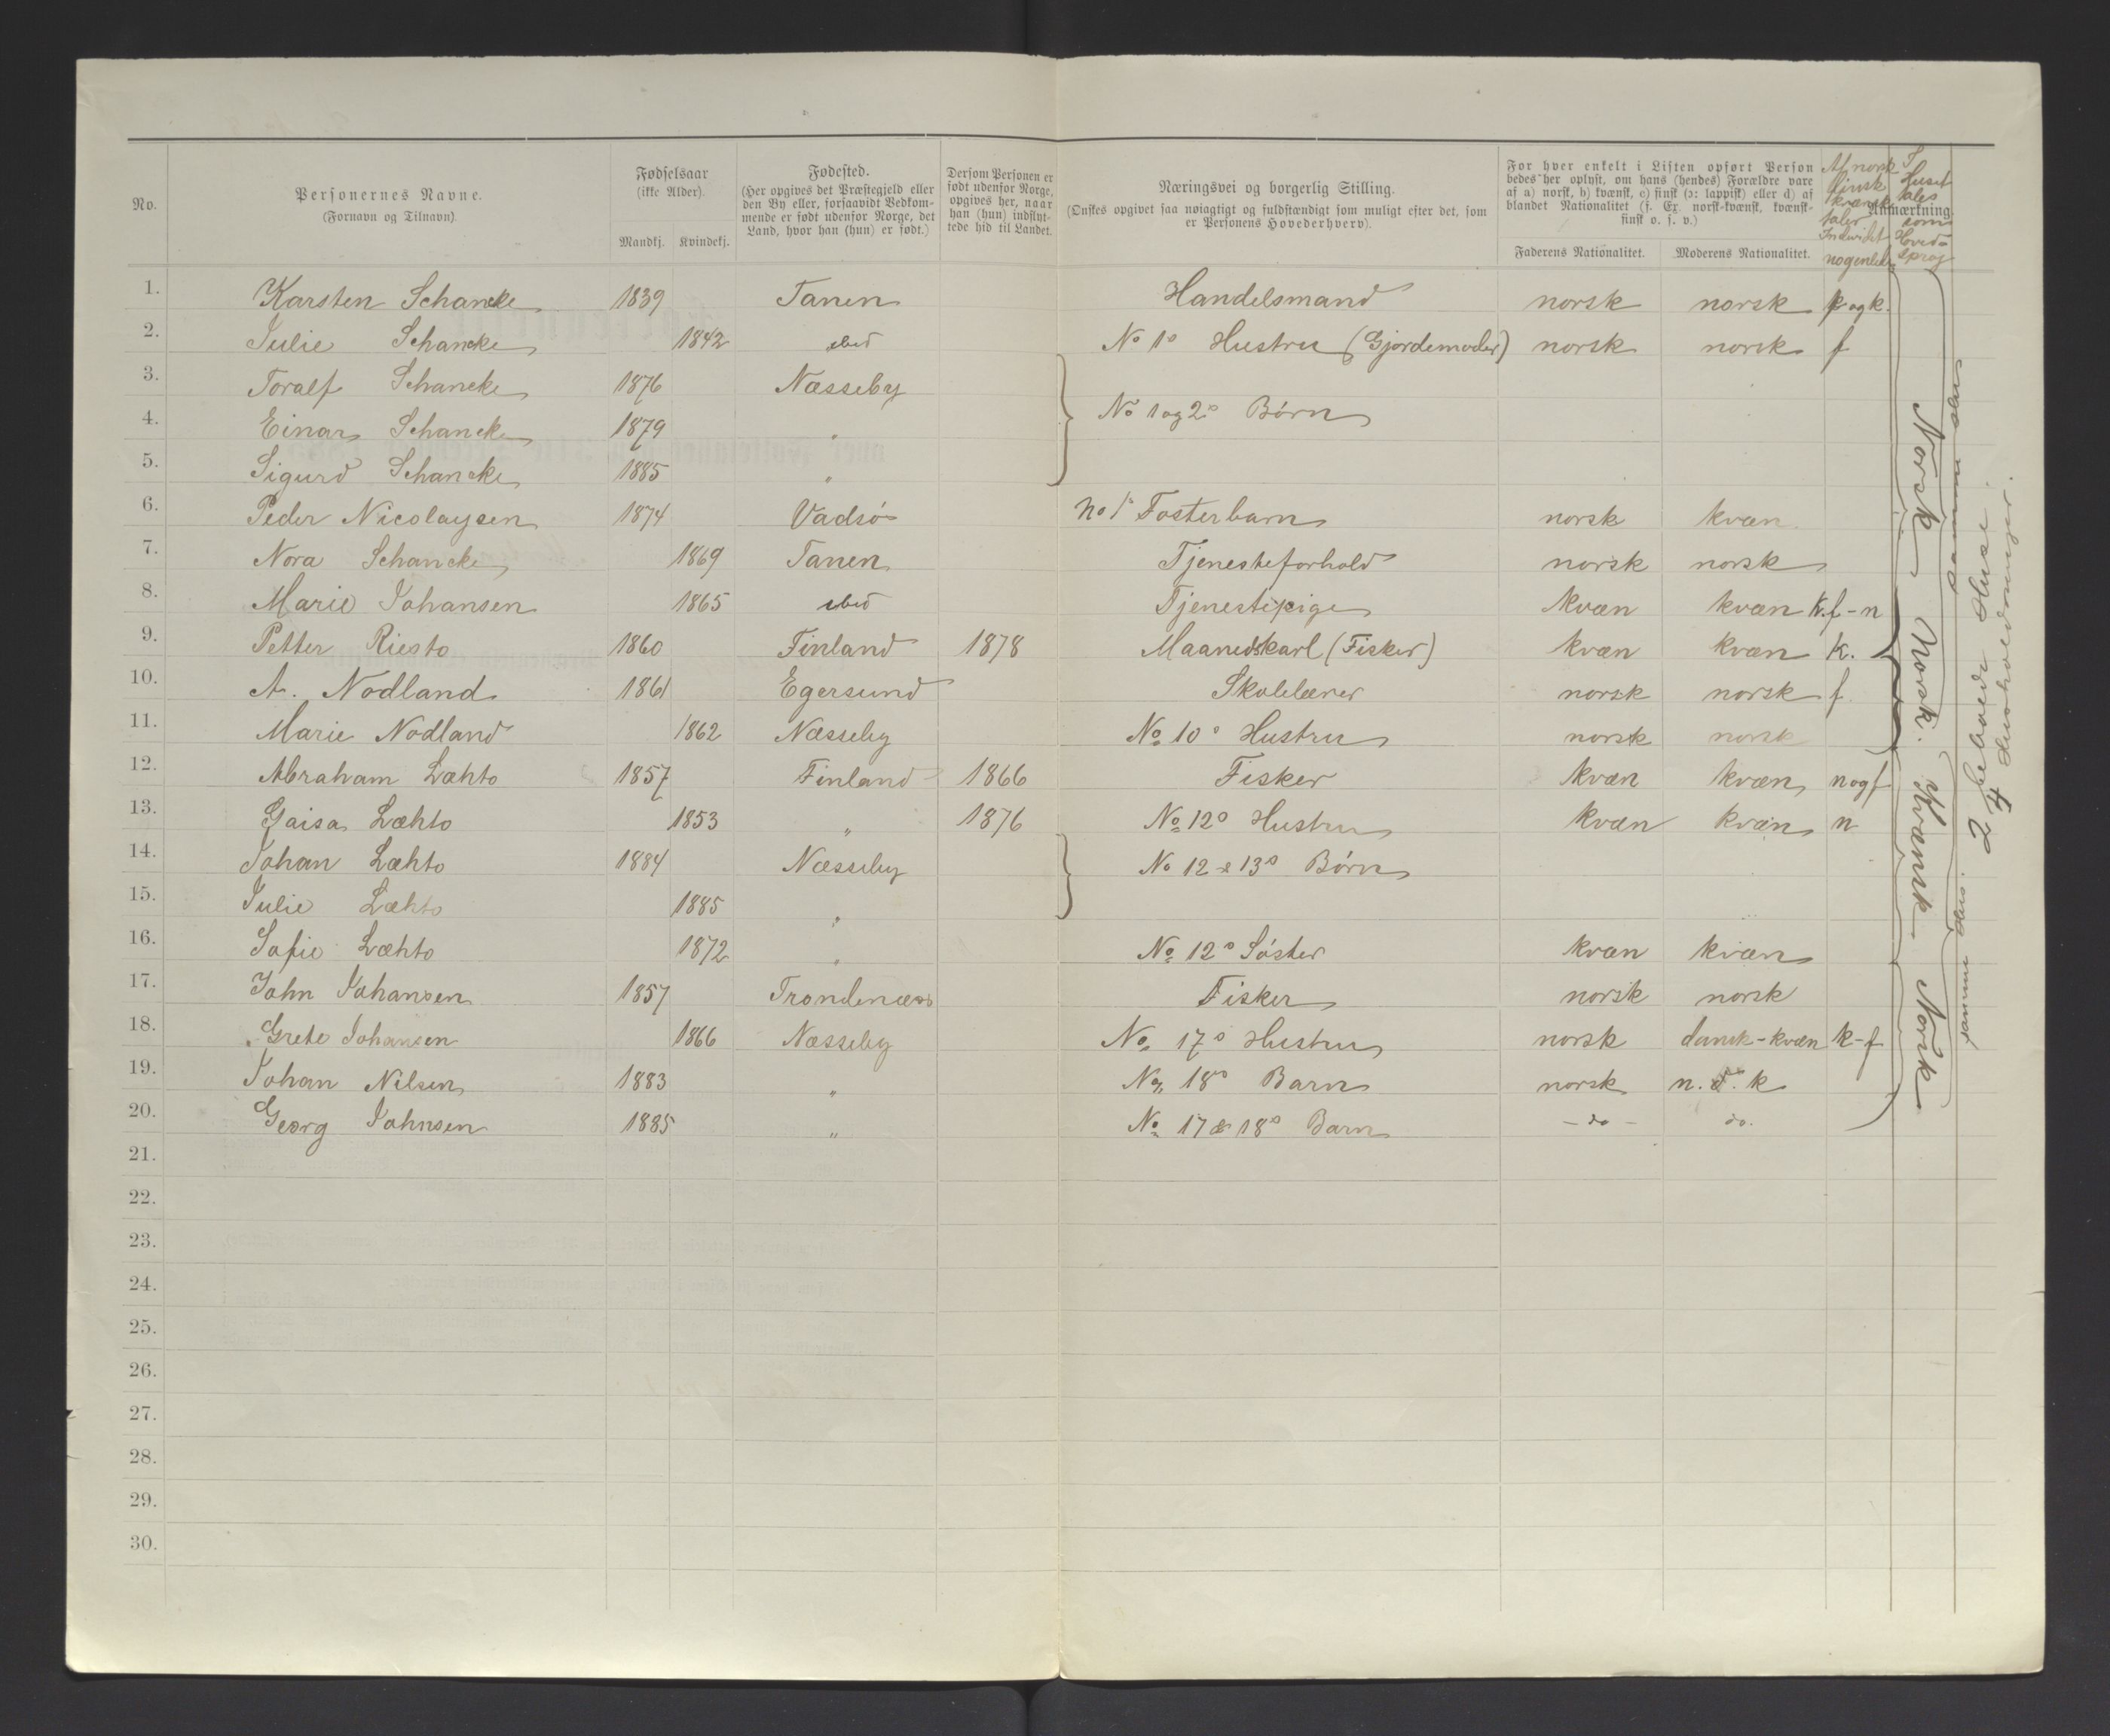 No.
Personernes Navne.
(Fornavn og Tilnavn).
Fødselsaar
(ikke Alder).
Mandkj. Kvindekj.
Fødested.
(Her opgives det Præstegjeld eller
den By eller, forsaavidt Vedkom-
mende er født udenfor Norge, det
Land, hvor han (hun) er født.)
Dersom Personen er
født udenfor Norge,
opgives her, naar
han (hun) indflyt-
tede hid til Landet.
Næringsvei og borgerlig Stilling.
(Ønskes opgivet saa nøiagtigt og fuldstændigt som muligt efter det, som
er Personens Hovederhverv).
For hver enkelt i Listen opført Person
bedes her oplyst, om hans (hendes) Forældre vare
af a) norsk, b) kvænsk, c) finsk (ɔ: lappisk) eller d) af
blandet Nationalitet (f. Ex. norsk-kvænsk, kvænsk-
finsk o. s. v.)
Faderens Nationalitet. Moderens Nationalitet.
Anmærkning
Af norsk
finsk
kvænsk
taler
Individet
nogenled
I
Huset
tales
som
Hoved-
sprog
1. Karsten Schancke 1839 Tanen Handelsmand norsk norsk f og k.
2. Julie Schancke 1842 ibid No 1s Hustru (Gjordemoder) norsk norsk f
3. Toralf Schancke 1876 Næsseby
No 1 og 2s Børn
4. Einar Schancke 1879 "
5. Sigurd Schancke 1885 "
6. Peder Nicolaysen 1874 Vadsø No 1s Fosterbarn norsk kvæn
7. Nora Schancke 1869 Tanen Tjenesteforhold norsk norsk
8. Marie Johansen 1865 ibid Tjenestepige kvæn kvæn k.f-n
9. Petter Riesto 1860 Finland 1878 Maanedskarl (Fisker) kvæn kvæn k.
10. A. Nodland 1861 Egersund Skolelærer norsk norsk f
11. Marie Nodland 1862 Næsseby No 10s Hustru norsk norsk
12. Abraham Læhto 1857 Finland 1866 Fisker kvæn kvæn n og f
13. Gaisa Læhto 1853 " 1876 No 12s Hustru kvæn kvæn n
14. Johan Læhto 1884 Næsseby No 12 & 13s Børn
15. Julie Læhto 1885 "
16. Sofie Læhto 1872 " No 12s Søster kvæn kvæn
17. John Johansen 1857 Trondenæs Fisker norsk norsk
18. Grete Johansen 1866 Næsseby No 17s Hustru norsk dansk-kvæn k-f
19. Johan Nilsen 1883 " No 18s Barn norsk n. d. k
20. Georg Johnsen 1885 " No 17 & 18s Barn - do - do.
21.
22.
23.
24.
25.
26.
27.
28.
29.
30.
Norsk Norsk. Kvænsk Norsk
samme Hus. samme Hus
2 beboede Huse.
4 Husholdninger.